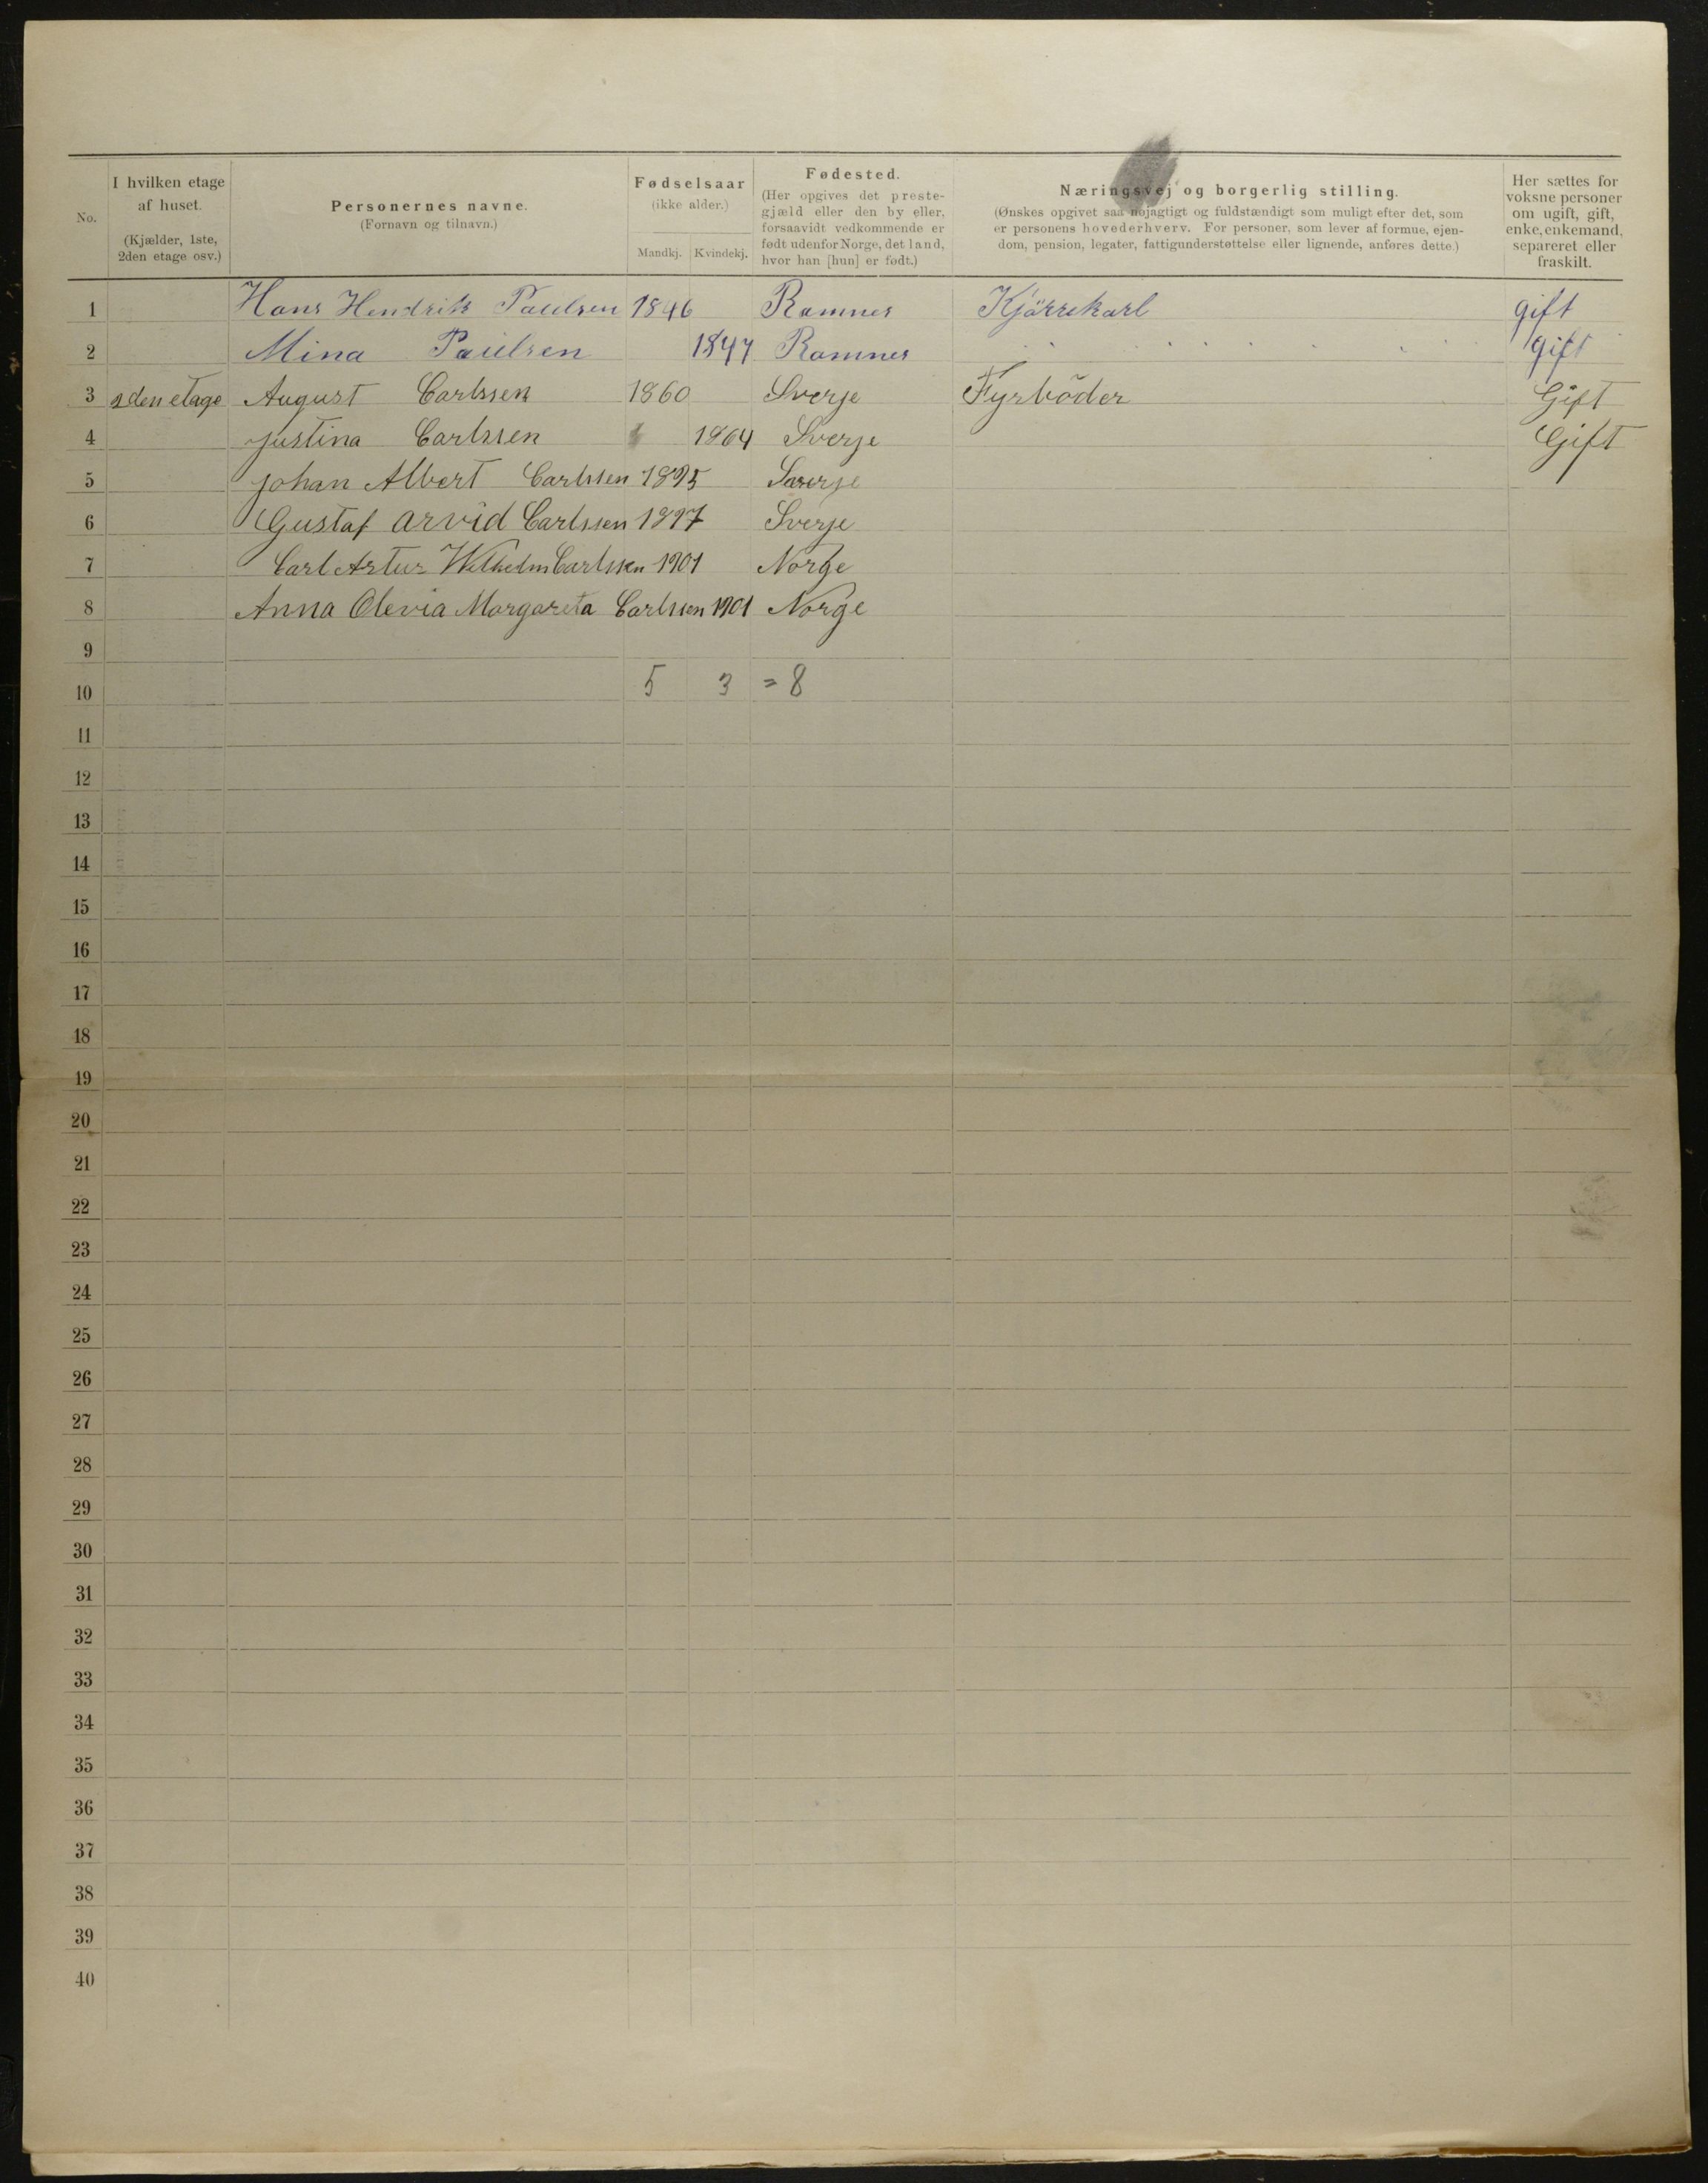 No.
I hvilken etage af huset.
(Kjælder, 1ste, 2den etage osv.)
Personernes navne.
(Fornavn og tilnavn.)
Fødselsaar
(ikke alder.)
Mandkj. Kvindekj.
Fødested.
(Her opgives det preste-
gjæld eller den by eller,
forsaavidt vedkommende er
født udenfor Norge, det land,
hvor han [hun] er født.)
Næringsvej og borgerlig stilling.
(Ønskes opgivet saa nøjagtigt og fuldstændigt som muligt efter det, som
er personens hovederhverv. For personer, som lever af formue, ejen-
dom, pension, legater, fattigunderstøttelse eller lignende, anføres dette.)
Her sættes for
voksne personer
om ugift, gift,
enke, enkemand,
separeret eller
fraskilt.
1 Hans Hendrik Paulsen 1846 Ramnes Kjörrekarl gift
2 Mina Paulsen 1847 Ramnes gift
3 2den etage August Carlssen 1860 Sverje Fyrböder Gift
4 Justina Carlssen 1864 Sverje Gift
5 Johan Albert Carlssen 1895 Sverje
6 Gustaf Arvid Carlssen 1897 Sverje
7 Carl Artur Wilhelm Carlssen 1901 Norge
8 Anna Olevia Margareta Carlssen 1901 Norge
9
10 5 3 = 8
11
12
13
14
15
16
17
18
19
20
21
22
23
24
25
26
27
28
29
30
31
32
33
34
35
36
37
38
39
40